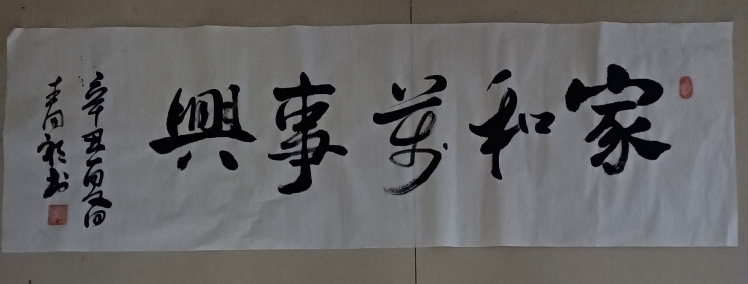 家和萬事興
辛丑夏日
书